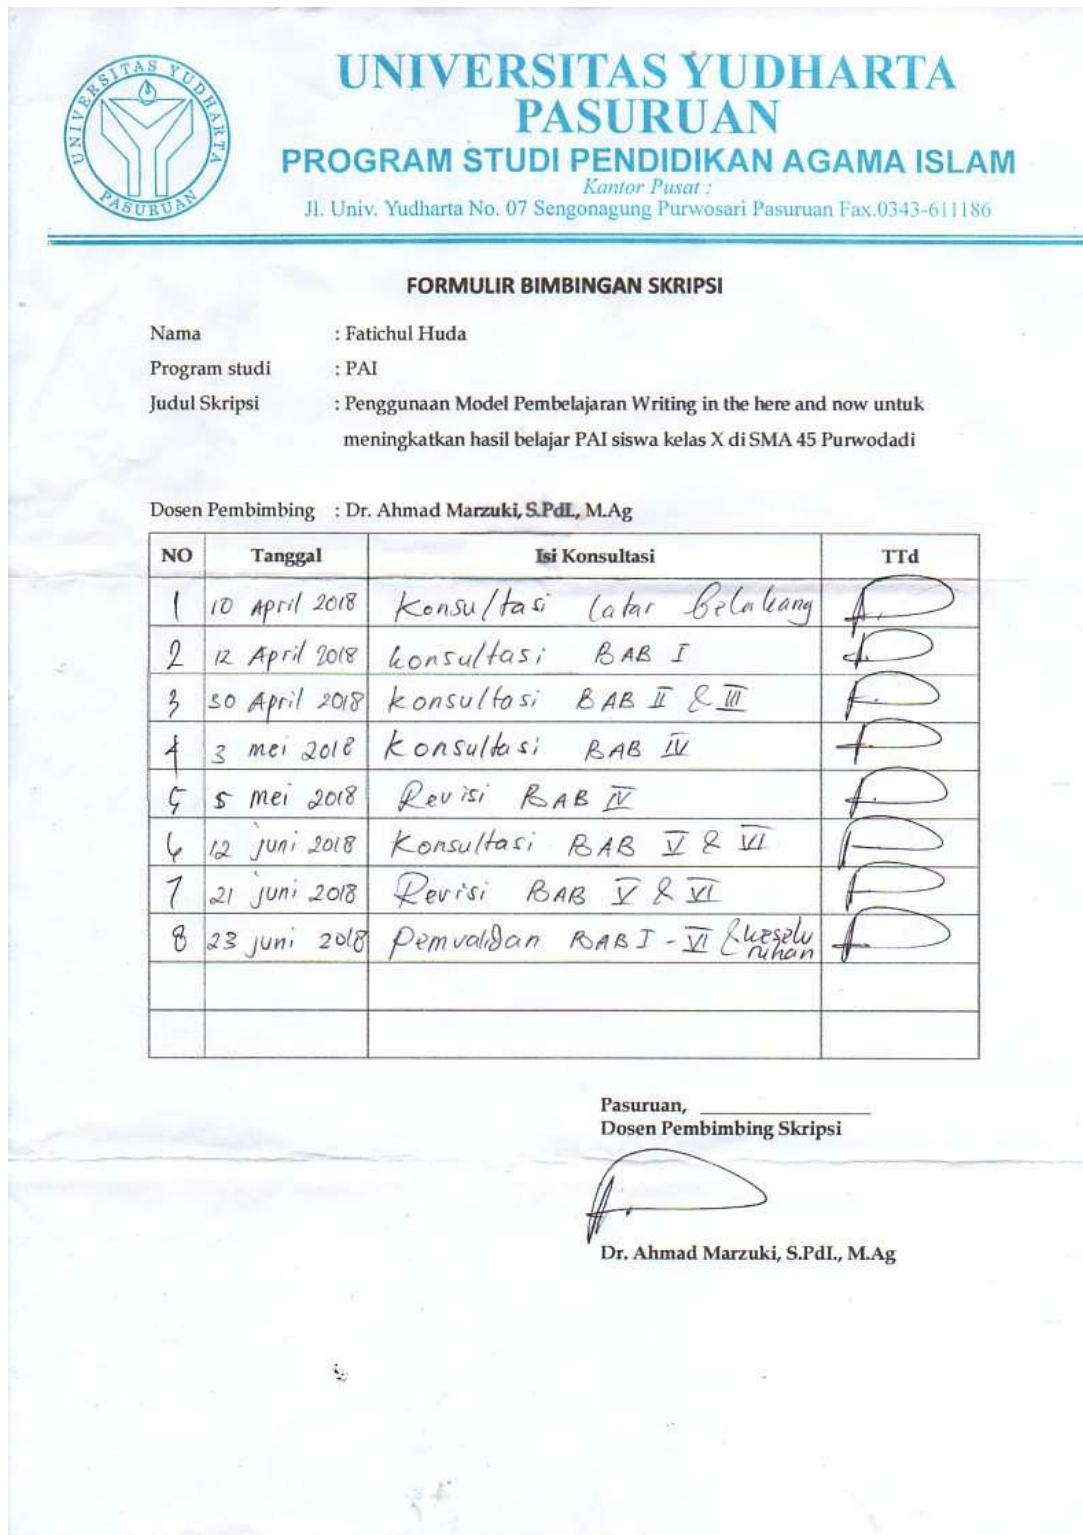 UNIVERSITAS YUDHARTA
PASURUAN
UNIVERSITAS YUDHARTA
PASURUAN
PROGRAM STUDI PENDIDIKAN AGAMA ISLAM
Kantor Pusat :
Jl. Univ. Yudharta No. 07 Sengonagung Purwosari Pasuruan Fax.0343-611186
FORMULIR BIMBINGAN SKRIPSI
Nama : Fatichul Huda
Program studi : PAI
Judul Skripsi : Penggunaan Model Pembelajaran Writing in the here and now untuk
meningkatkan hasil belajar PAI siswa kelas X di SMA 45 Purwodadi
Dosen Pembimbing : Dr. Ahmad Marzuki, S.PdI., M.Ag
NO Tanggal Isi Konsultasi TTd
1 10 April 2018 Konsultasi latar belakang
2 12 April 2018 konsultasi BAB I
3 30 April 2018 konsultasi BAB II & III
4 3 mei 2018 Konsultasi BAB IV
5 5 mei 2018 Revisi BAB IV
6 12 juni 2018 Konsultasi BAB V & VI
7 21 juni 2018 Revisi BAB V & VI
8 23 juni 2018 pemvalidan BAB I - VI & keseluruhan
Pasuruan,
Dosen Pembimbing Skripsi
Dr. Ahmad Marzuki, S.PdI., M.Ag